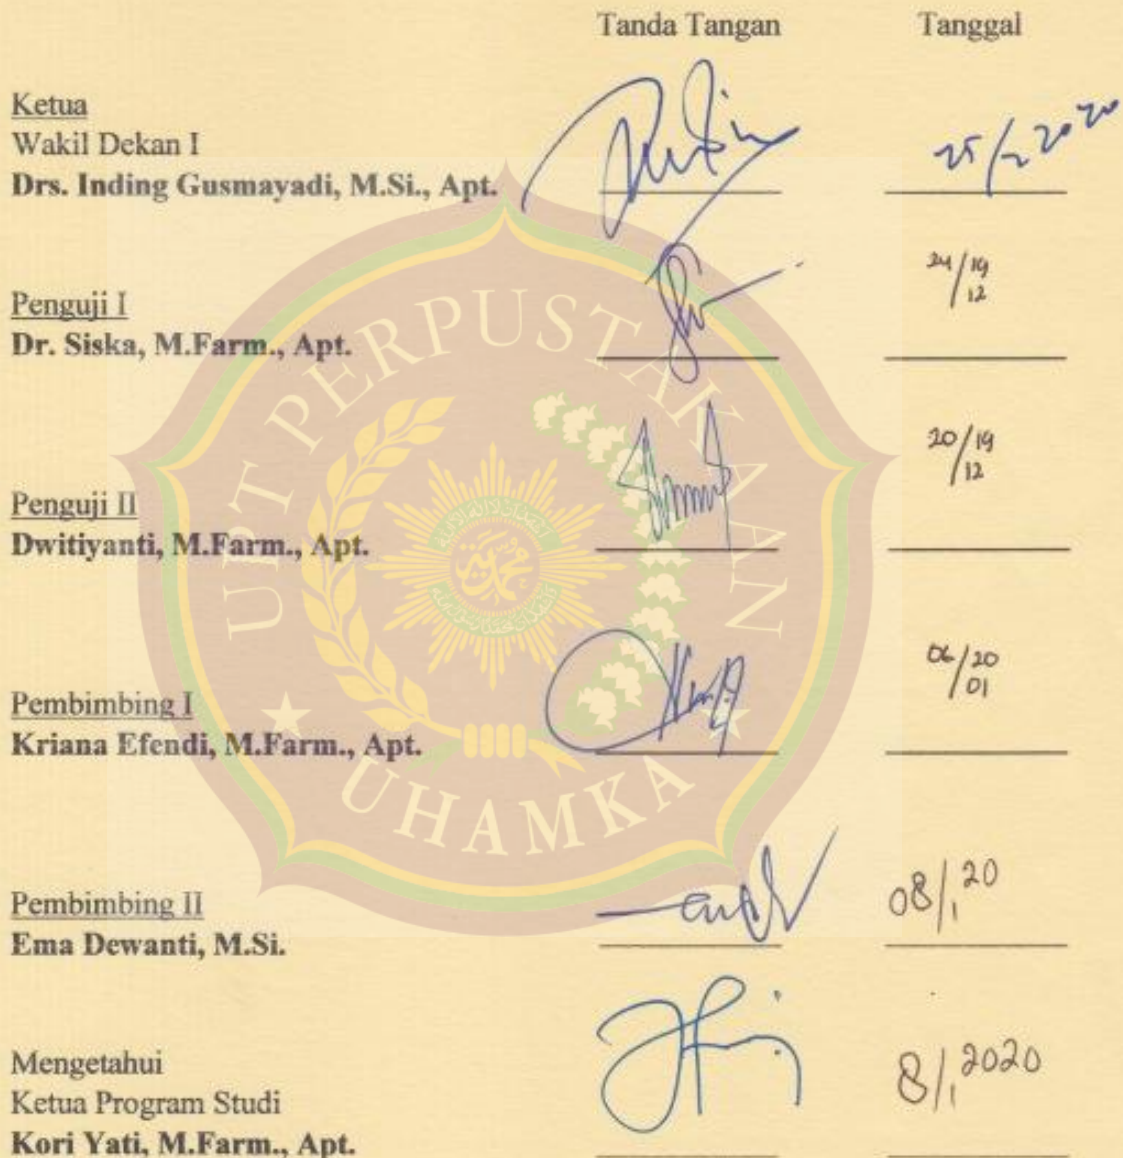 Tanda Tangan Tanggal
Ketua
Wakil Dekan I
Drs. Inding Gusmayadi, M.Si., Apt.
25/2 2020
Penguji I
Dr. Siska, M.Farm., Apt.
24/19
12
Penguji II
Dwitiyanti, M.Farm., Apt.
20/19
12
Pembimbing I
Kriana Efendi, M.Farm., Apt.
06/20
01
Pembimbing II
Ema Dewanti, M.Si.
08/1 20
Mengetahui
Ketua Program Studi
Kori Yati, M.Farm., Apt.
8/1 2020
UPT PERPUSTAKAAN
UHAMKA